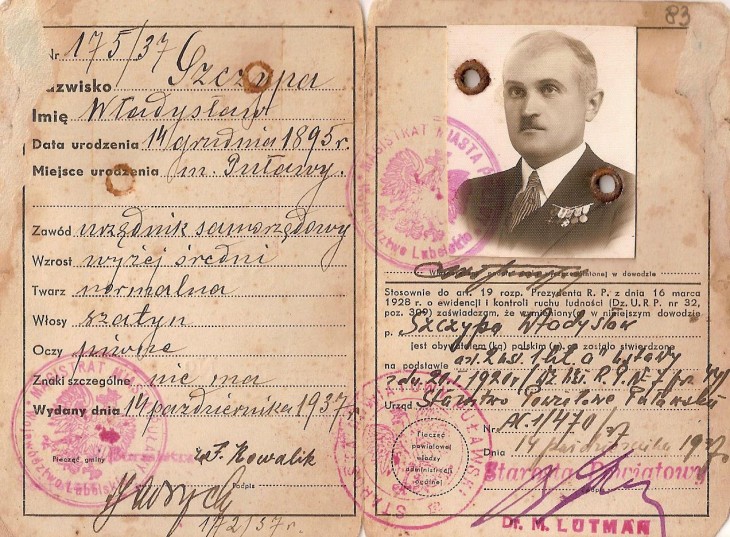 Nr. 175/37
Nazwisko Szczypa
Imię Władysław
Data urodzenia 14 grudnia 1895 r.
Miejsce urodzenia m. Puławy.
Zawód urzędnik samorzędowy
Wzrost wyżej średni
Twarz normalna
Włosy szatyn
Oczy piwne
Znaki szczególne nie ma
Wydany dnia 14 października 1937 r.
MAGISTRAT MIASTA
Województwo Lubelskie
Pieczęć gminy
F. Kowalik
Podpis
172/37 r.
83
MAGISTRAT MIASTA
Województwo Lubelskie
wymienionej w dowodzie
Stosownie do art. 19 rozp. Prezydenta R. P. z dnia 16 marca
1928 r. o ewidencji i kontroli ruchu ludności (Dz. U. R. P. nr 32,
poz. 309) zaświadczam, że wymieniony(a) w niniejszym dowodzie
p. Szczypa Władysław
jest obywatelem (ką) polskim (ą), co zostało stwierdzone
na podstawie art. 2 ust. 1 lit. a ustawy
z dn. 20.I.1920 r.
Urząd Starostwo Powiatowe Puławskie
Nr. 1/470/37
Dnia 14 października 1937
Pieczęć
powiatowej
władzy
administracji
ogólnej
Starosta Powiatowy
Dr. M. LUTMAN